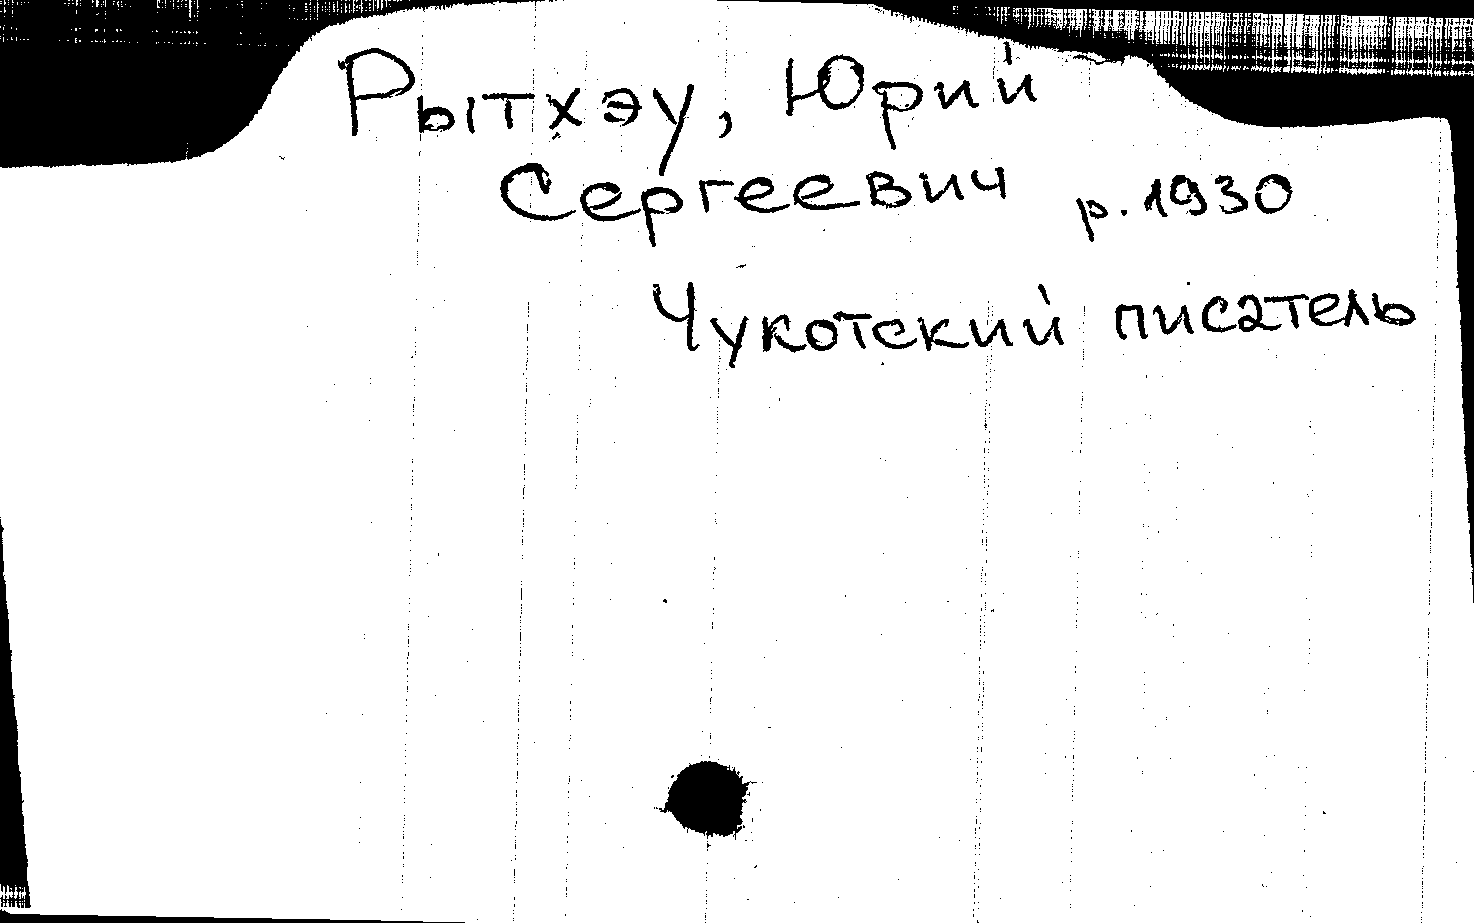 Рытхэу, Юрий
Сергеевич р. 1930
Чукотский писатель